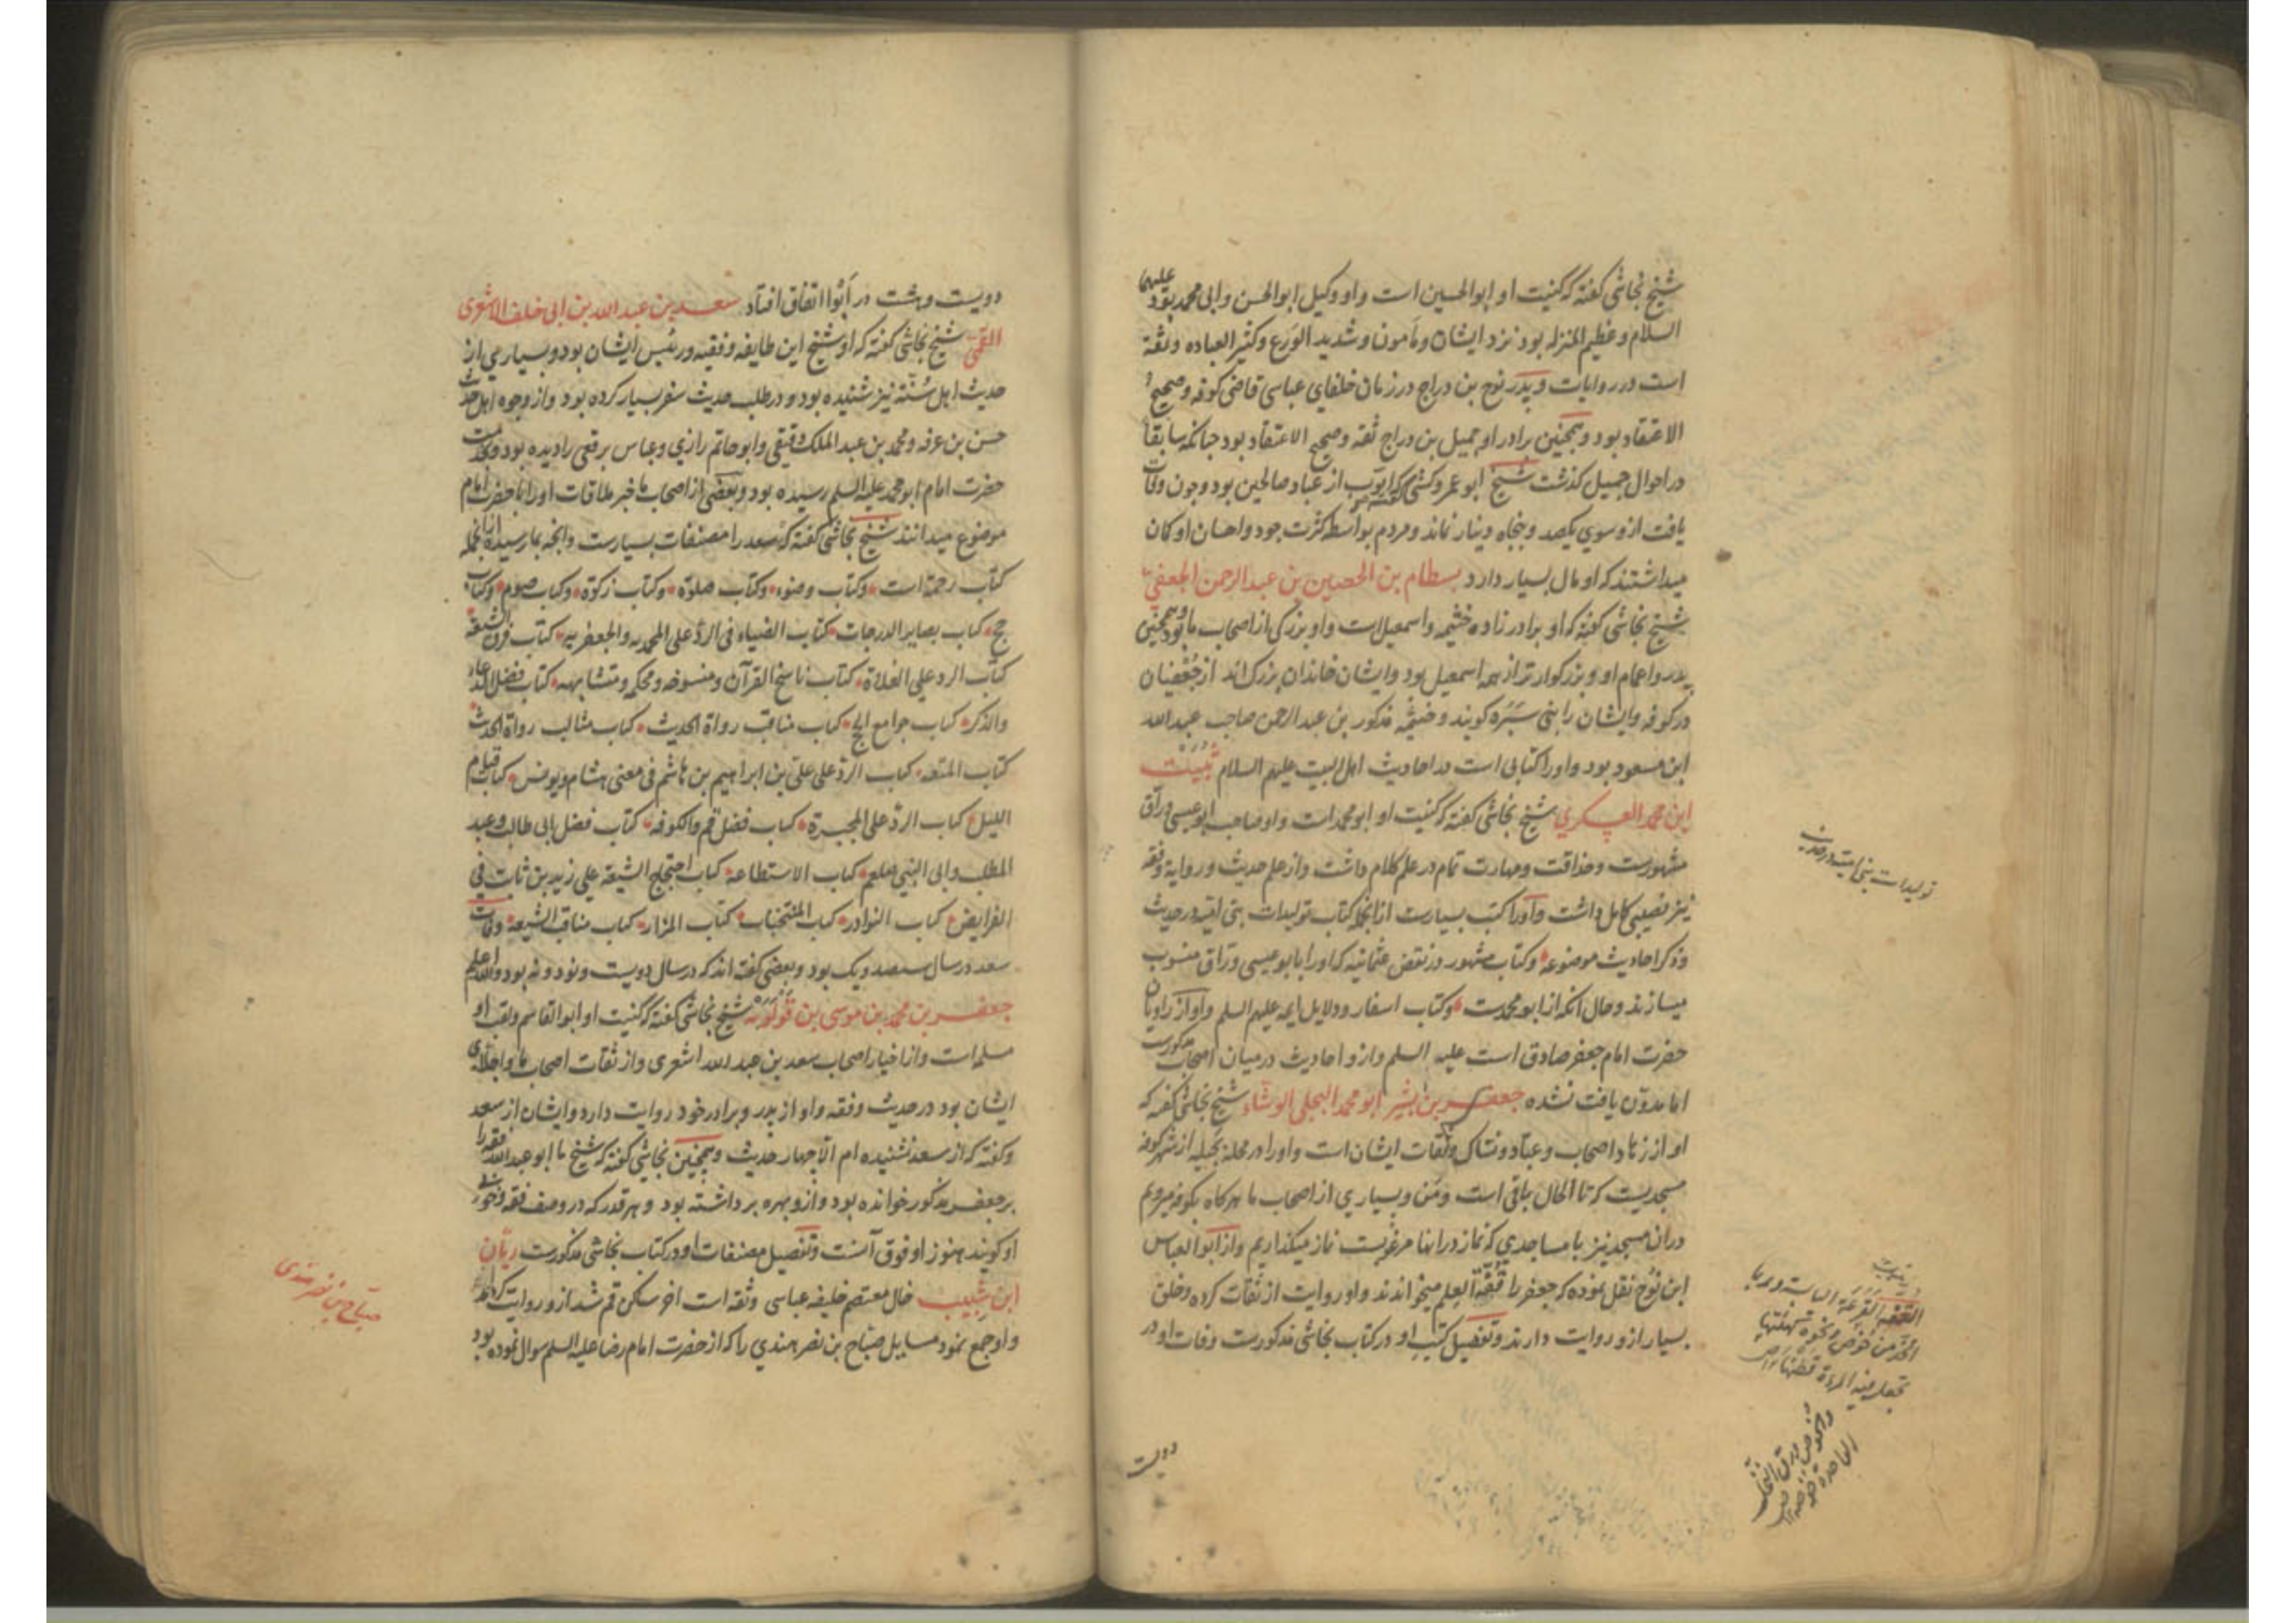 شیخ نجاشی گفته که کنیت او ابوالحسین است و او وکیل ابوالحسن و ابی محمد بود علیهما
السلام و عظیم المنزله بود نزد ایشان و مأمون و شدید الورع و کثیر العباده و ثقة
است در روایات و پدر نوح بن دراج در زمان خلفای عباسی قاضی کوفه و صحیح
الاعتقاد بود و همچنین برادر او جمیل بن دراج ثقه و صحیح الاعتقاد بود چنانکه سابقا
در احوال جمیل گذشت شیخ ابو عمرو کشی گفته که ایوب از عباد صالحین بود و چون وفات
یافت ازو سوی یکصد و پنجاه دینار نماند و مردم بواسطه کثرت جود و احسان او کان
میداشتند که او مال بسیار دارد بسطام بن الحصین بن عبد الرحمن الجعفی
شیخ نجاشی گفته که او برادر زاده خثیمه و اسمعیل است و او بزرگی از اصحاب ما بود و همچنین
پدر و اعمام او و بزرگوار تر از همه اسمعیل بود و ایشان خاندان بزرک اند از جعفیان
در کوفه و ایشان را بنی سبره گویند و خثیمه مذکور بن عبد الرحمن صاحب عبد الله
ابن مسعود بود و اورا کتابی است در احادیث اهل البیت علیهم السلام ثبیت
ابن محمد العسکری شیخ نجاشی گفته که کنیت او ابو محمد است و او صاحب ابو عیسی وراق
مشهورست و حذاقت و مهارت تمام در علم کلام داشت و از علم حدیث و روایة و فقه
نیز نصیبی کامل داشت و اورا کتب بسیارست از آنجمله کتاب تولیدات بنی امیه در حدیث
و ذکر احادیث موضوعه و کتاب مشهور در نقض عثمانیه که اورا بابو عیسی وراق منسوب
میسازند و حال آنکه از ابو محمدست و کتاب اسفار و دلایل ایمه علیهم السلم و او از راویان
حضرت امام جعفر صادق است علیه السلم و ازو احادیث در میان اصحاب مذکورست
اما مدون یافت نشده جعفر بن بشیر ابو محمد البجلی الوشاء شیخ نجاشی گفته که
او از زهاد اصحاب و عباد و نساک و ثقات ایشان است و اورا در محله بجیله از شهر کوفه
مسجدیست که تا الحال باقی است و من و بسیاری از اصحاب ما هرگاه بکوفه میرویم
در ان مسجد نیز با مساجدی که نماز در اینها مرغوبست نماز میگذاریم و از ابو العباس
ابن نوح نقل نموده که جعفر را قفة العلم میخواندند و او روایت از ثقات کرده و خلق
بسیار ازو روایت دارند و تفصیل کتب او در کتاب نجاشی مذکورست وفات او در
تولیدات بنی امیه در حدیث
دویست
دویست و هشت در ابوا اتفاق افتاد سعد بن عبد الله بن ابی خلف الاشعری
القمی شیخ نجاشی گفته که او شیخ این طایفه و فقیه و رئیس ایشان بود و بسیاری از
حدیث اهل سنت نیز شنیده بود و در طلب حدیث سفر بسیار کرده بود و از وجوه اهل حدیث
حسن بن عرفه و محمد بن عبد الملک دقیقی و ابو حاتم رازی و عباس برقفی را دیده بود و بخدمت
حضرت امام ابو محمد علیه السلم رسیده بود و بعضی از اصحاب ما خبر ملاقات اورا با حضرت امام
موضوع میدانند شیخ نجاشی گفته که سعد را مصنفات بسیارست و انچه بما رسیده از آنجمله
کتاب رحمة است و کتاب وضوء و کتاب صلوة و کتاب زکوة و کتاب صوم و کتاب
حج کتاب بصایر الدرجات کتاب الضیاء فی الرد علی المحمدیه و الجعفریه کتاب فرق الشیعة
کتاب الرد علی الغلاة کتاب ناسخ القرآن و منسوخه و محکمه و متشابهه کتاب فضل الدعاء
والذکر کتاب جوامع الحج کتاب مناقب رواة الحدیث کتاب مثالب رواة الحدیث
کتاب المتعه کتاب الرد علی علی بن ابراهیم بن هاشم فی معنی هشام و یونس کتاب قیام
اللیل کتاب الرد علی المجبرة کتاب فضل قم والکوفه کتاب فضل ابی طالب و عبد
المطلب و ابی النبی صلعم کتاب الاستطاعة کتاب احتجاج الشیعة علی زید بن ثابت فی
الفرایض کتاب النوادر کتاب المنتخبات کتاب المزار کتاب مناقب الشیعة وفات
سعد در سال سیصد و یک بود و بعضی گفته اند که در سال دویست و نود و نه بود والله اعلم
جعفر بن محمد بن موسی بن قولویه شیخ نجاشی گفته که کنیت او ابوالقاسم و لقب او
مسلمه است و از اخیار اصحاب سعد بن عبد الله اشعری و از ثقات اصحاب ما و اجلای
ایشان بود در حدیث و فقه و او از پدر و برادر خود روایت دارد و ایشان از سعد
و گفته که از سعد نشنیده ام الا چهار حدیث و همچنین نجاشی گفته که شیخ ما ابو عبد الله فقه را
بر جعفر مذکور خوانده بود و ازو بهره برداشته بود و هر قدر که در وصف فقه و خوبی
او گویند هنوز او فوق آنست و تفصیل مصنفات او در کتاب نجاشی مذکورست ریان
ابن شبیب خال معتصم خلیفه عباسی و ثقه است اخر ساکن قم شد ازو روایت کرده اند
و او جمع نمود مسایل صباح بن نصر هندی را که از حضرت امام رضا علیه السلم سوال نموده بود
صباح بن نصر هندی